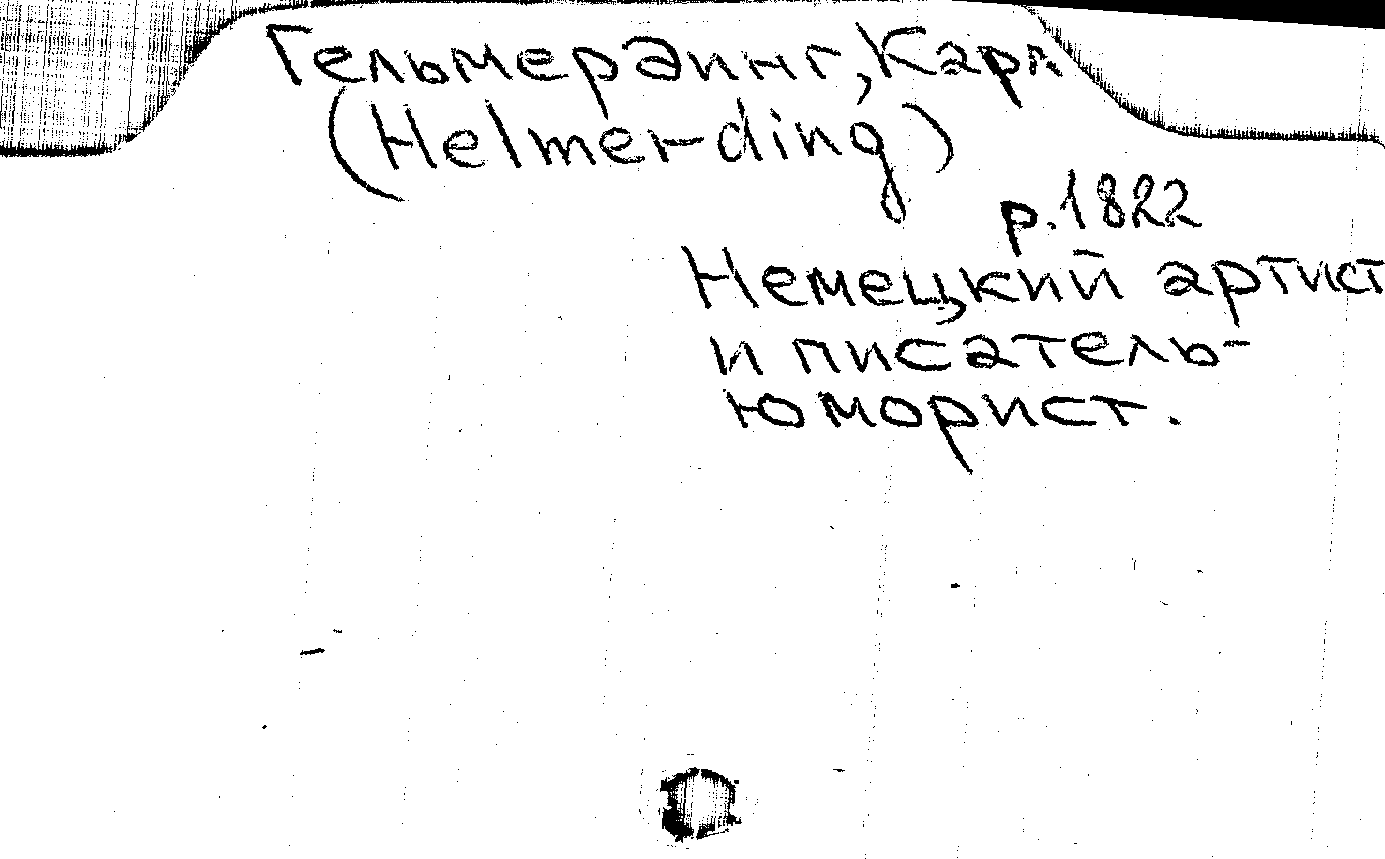 Гельмердинг, Карл
(Helmerding)
р. 1822
Немецкий артист
и писатель-
юморист.